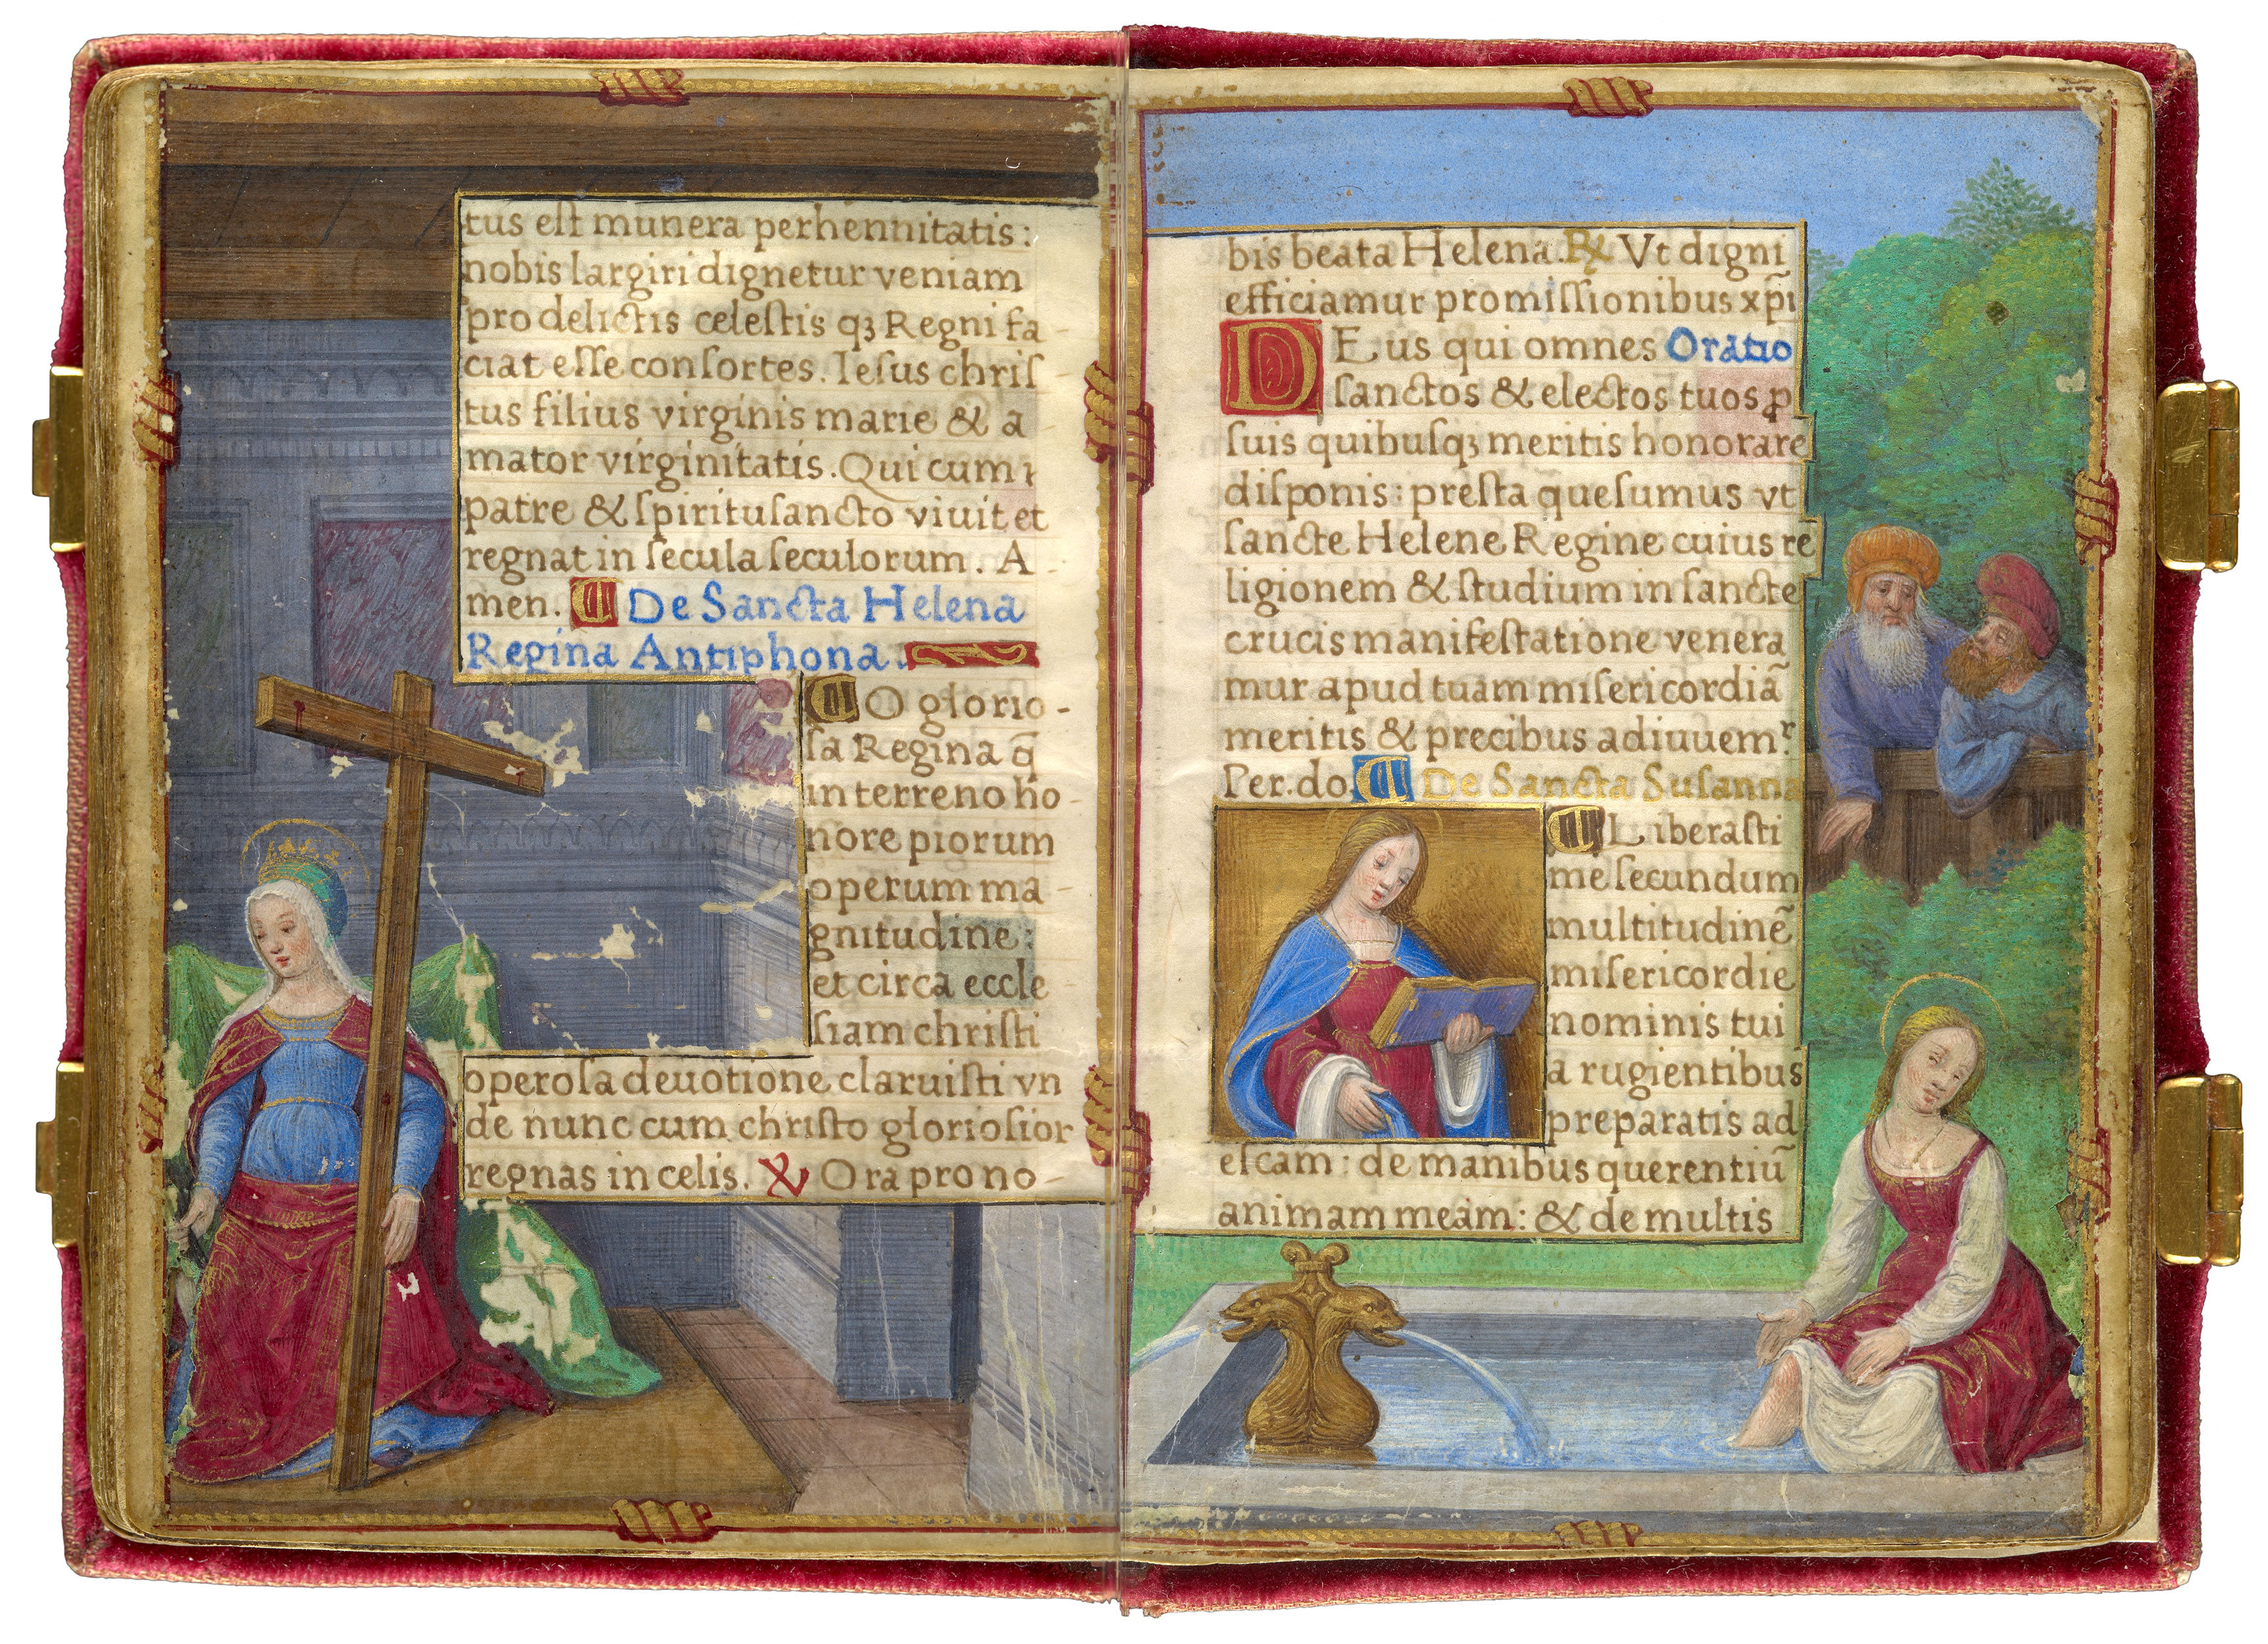 tus est munera perhennitatis:
nobis largiri dignetur veniam
pro delictis celestis qꝫ Regni fa-
ciat esse consortes. Iesus chris-
tus filius virginis marie & a-
mator virginitatis. Qui cum
patre & spiritusancto viuit et
regnat in secula seculorum. A-
men. De Sancta Helena
Regina Antiphona.
O glorio-
sa Regina q̄
in terreno ho-
nore piorum
operum ma-
gnitudine:
et circa eccle
siam christi
operosa deuotione claruisti vn
de nunc cum christo gloriosior
regnas in celis. ℣ Ora pro no-
bis beata Helena. ℟ Vt digni
efficiamur promissionibus xp̄i
DEus qui omnes Oratio
sanctos & electos tuos ꝓ
suis quibusqꝫ meritis honorare
disponis: presta quesumus vt
sancte Helene Regine cuius re̅
ligionem & studium in sancte
crucis manifestatione venera
mur apud tuam misericordiā
meritis & precibus adiuuemʳ.
Per. do. De Sancta Susanna
Liberasti
me secundum
multitudinē
misericordie
nominis tui
a rugientibus
preparatis ad
escam: de manibus querentiū
animam meam: & de multis